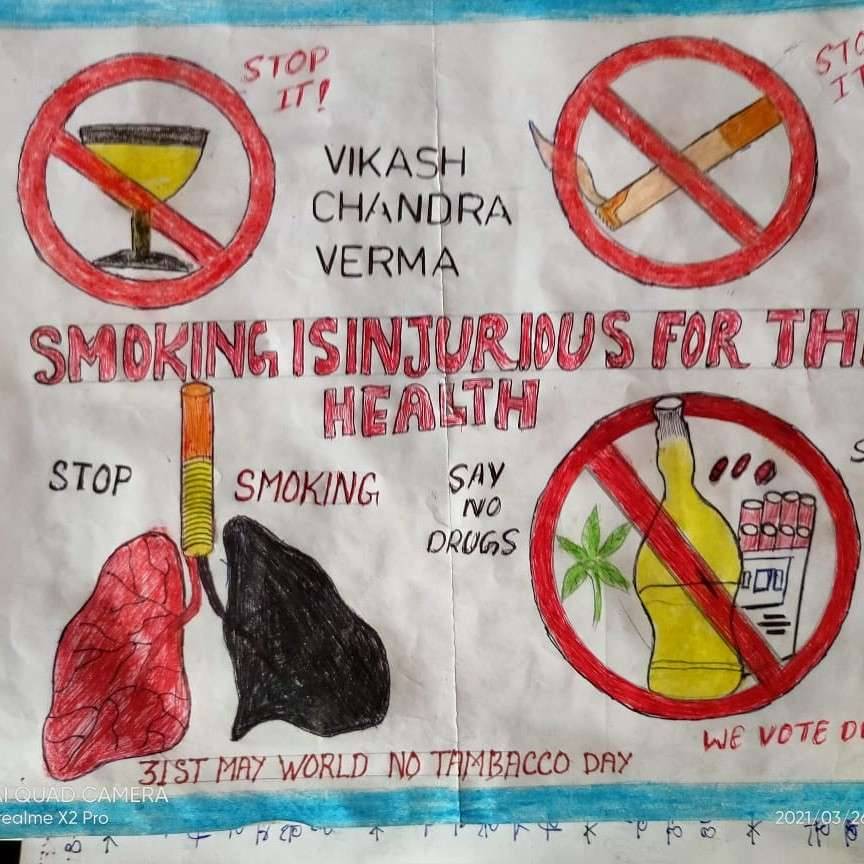 STOP
IT!
STO
IT
VIKASH
CHANDRA
VERMA
SMOKING IS INJURIOUS FOR TH
HEALTH
STOP
SMOKING
SAY
NO
DRUGS
S
WE VOTE D
31ST MAY WORLD NO TAMBACCO DAY
AI QUAD CAMERA
realme X2 Pro
2021/03/26